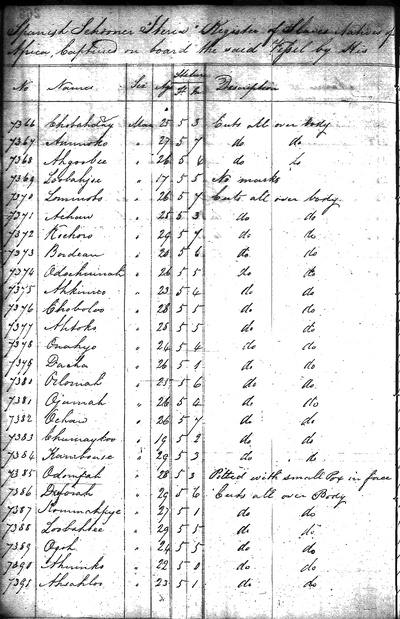 Spanish Schooner "Iberia" Register of Slaves Natives of
Africa, Captured on board the said Vessel by His
No Names Sex Age Stature Description
Ft. In
7366 Chobahday Man 25 5 3 Cuts all over body
7367 " 29 5 7 do do
7368 Ahgoobee " 26 5 6 do do
7369 Loobahjee " 17 5 5 No marks
7370 Lommoho " 26 5 7 Cuts all over body
7371 " 25 5 3 do do
7372 Kechoro " 29 5 7 do do
7373 Bordean " 28 5 6 do do
7374 Odochuinah " 26 5 5 do do
7375 " 23 5 4 do do
7376 Choboloo " 28 5 5 do do
7377 Ahtoko " 25 5 5 do do
7378 Onahyo " 24 5 4 do do
7379 Dacha " 26 5 1 do do
7380 Oclomah " 25 5 6 do do
7381 Ojamah " 26 5 4 do do
7382 Ochoir " 26 5 7 do do
7383 Chumaytoo " 19 5 2 do do
7384 " 29 5 3 do do
7385 Odompah " 28 5 3 Pitted with small Pox in face
7386 " 29 5 6 Cuts all over Body
7387 " 27 5 1 do do
7388 Loobahlee " 29 5 5 do do
7389 Ogoh " 24 5 5 do do
7390 " 22 5 0 do do
7391 " 23 5 1 do do